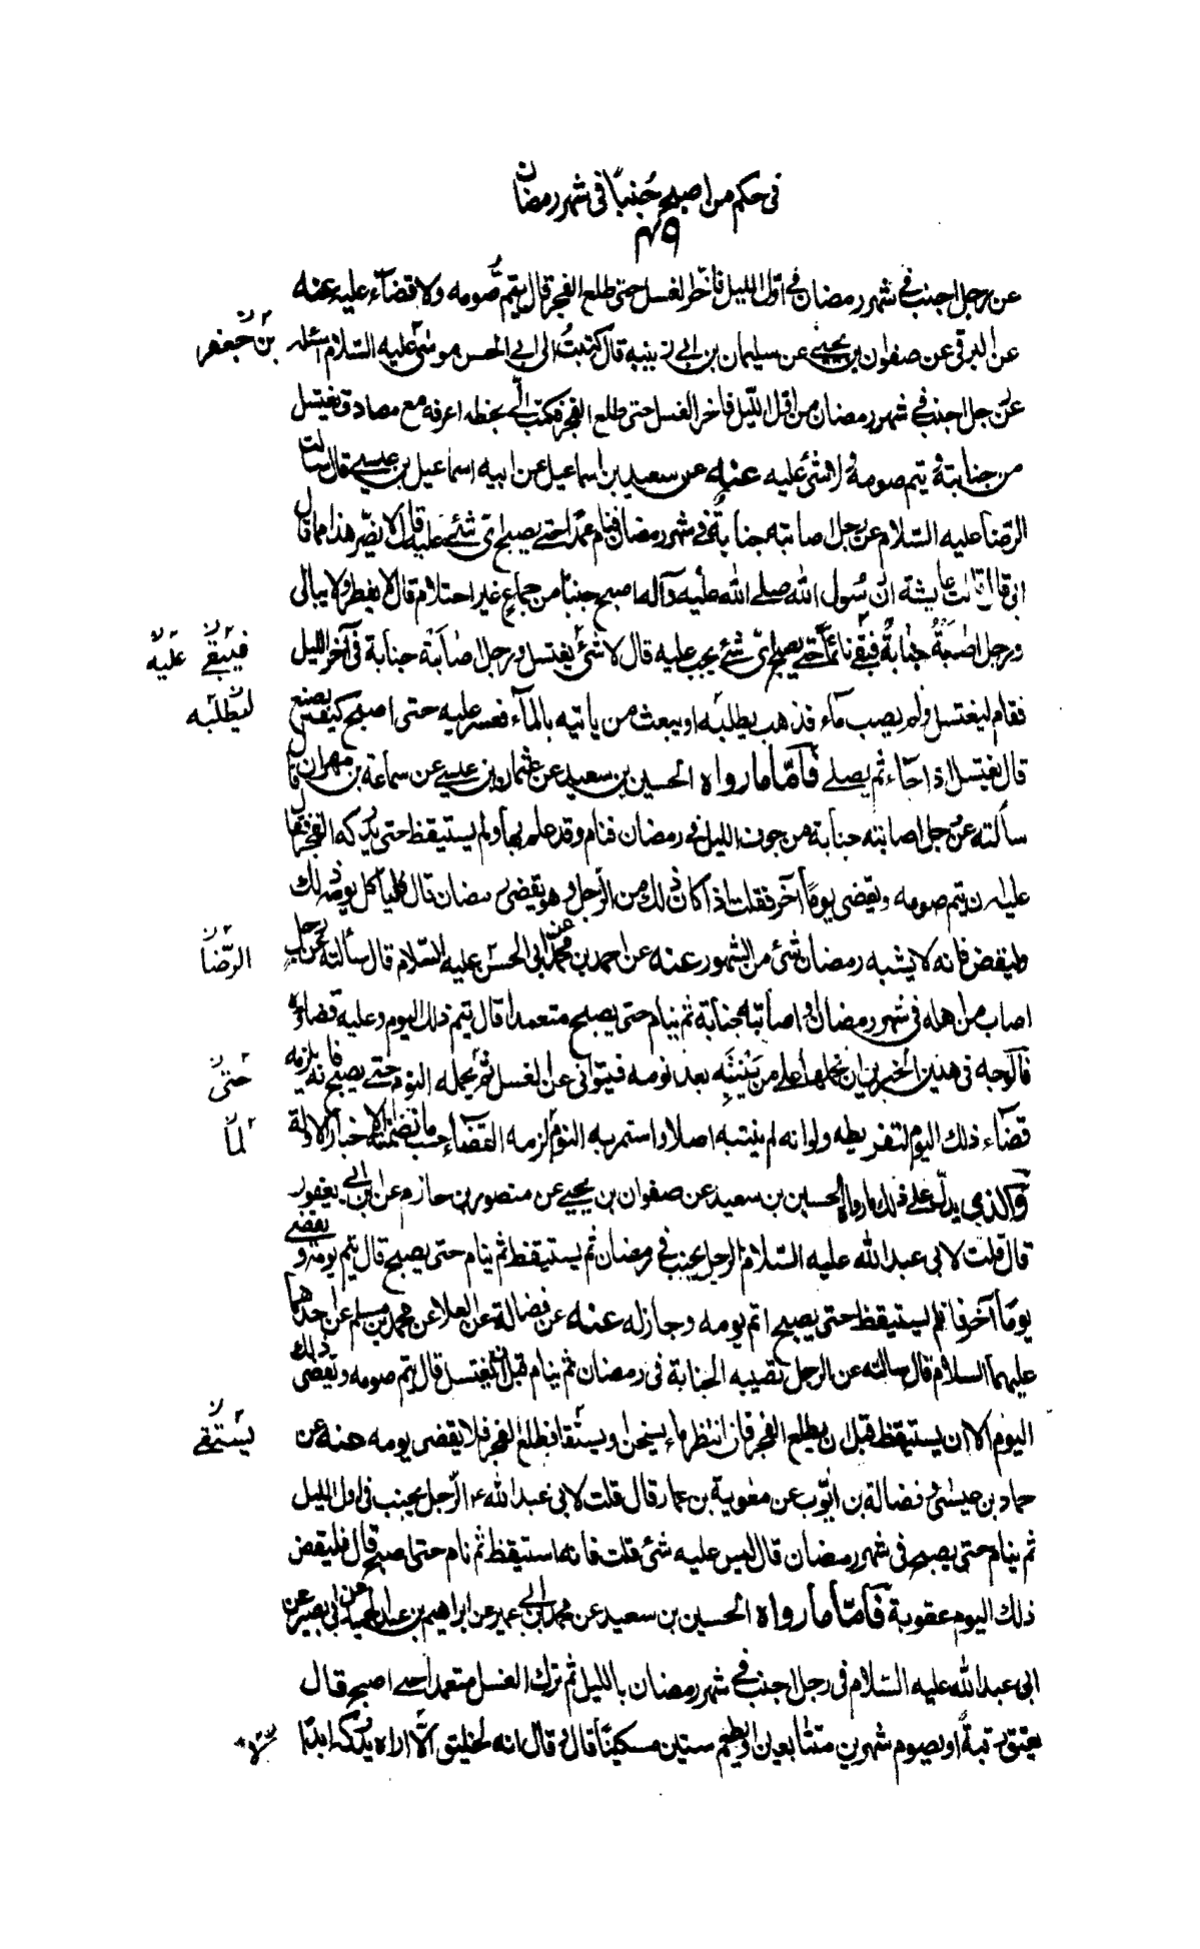 فى حكم من اصبح جُنبًا فى شهر رمضان
٤٩
عن رجل اجنب فى شهر رمضان فى اوّل الليل فاخّر الغسل حتى طلع الفجر قال يتمّ صومه ولا قضآء عليه عنه
عن البرقى عن صفوان بن يحيى عن سليمان بن ابى زينبه قال كتبتُ الى ابى الحسن موسى عليه السّلام اسئله
بن جعفر
عن رجل اجنب فى شهر رمضان من اوّل اللّيل فاخر الغسل حتى طلع الفجر فكتب الَىّ بخطه اعرفه مع مصادف يغتسل
من جنابته و يتم صومه و لا شئ عليه عنه عن سعيد بن اسماعيل عن ابيه اسماعيل بن عيسى قال سالت
الرضا عليه السّلام عن رجل اصابته جنابةٌ فى شهر رمضان فنام عمدًا حتى يصبح اىّ شئ عليه قال لا يضرّ هذا ما قال
ابى قال قالت عايشة انّ رسول الله صلى الله عليه وآله اصبح جنبًا من جماعٍ غير احتلام قال لا يفطر ولا يبالى
ورجل اصابته جنابةٌ فبقى نائمًا حتى يصبح اىّ شئ يجب عليه قال لا شئ يغتسل ورجل اصابته جنابة فى آخر الليل
فيبقى عليه
فقام ليغتسل ولم يصب مآء فذهب يطلبه او يبعث من ياتيه بالمآء فعسر عليه حتى اصبح كيف يصنع
ليطلبه
قال يغتسل اذا جآء ثم يصلى فامّا ما رواه الحسين بن سعيد عن عثمان بن عيسى عن سماعة بن مهران قال
سألته عن رجل اصابته جنابة من جوف الليل فى رمضان فنام وقد علم بها ولم يستيقظ حتى يدركه الفجر فقال
عليه ان يتم صومه ويقضى يومًا آخر فقلت اذا كان ذلك من الرّجل وهو يقضى رمضان قال فلياكل يومه ذلك
وليقض فانه لا يشبه رمضان شئ من الشهور عنه عن احمد بن محمّد عن ابى الحسن عليه السّلام قال سألته عن رجل
الرّضا
اصاب من اهله فى شهر رمضان او اصابته جنابة ثم ينام حتى يصبح متعمدا قال يتم ذلك اليوم وعليه قضاؤه
فالوجه فى هذين الخبرين ان نحملهما على من ينتبه بعد نومه فيتوانى عن الغسل ثم يحمله النوم حتى يصبح فانه يلزمه
حتىّ
قضآء ذلك اليوم لتفريطه ولو انه لم ينتبه اصلا واستمر به النوم لزمه القضآء حسب ما تضمنته الاخبار الاولة
لمّا
والذى يدلّ على ذلك ما رواه الحسين بن سعيد عن صفوان بن يحيى عن منصور بن حازم عن ابن ابى يعفور
قال قلت لابى عبد الله عليه السّلام الرجل يجنب فى رمضان ثم يستيقظ ثم ينام حتى يصبح قال يتم يومه ويقضى
يومًا آخر فان لم يستيقظ حتى يصبح اتم يومه وجاز له عنه عن فضالة عن العلا عن محمد بن مسلم عن احدهما
عليهما السلام قال سالته عن الرجل تصيبه الجنابة فى رمضان ثم ينام قبل ان يغتسل قال يتم صومه ويقضى ذلك
اليوم الا ان يستيقظ قبل ان يطلع الفجر فان انتظر ماء يسخن او يستقا فطلع الفجر فلا يقضى يومه عنه عن
يستقى
حماد بن عيسى و فضالة بن ايّوب عن معوية بن عمار قال قلت لابى عبد الله ع الرّجل يجنب فى اول الليل
ثم ينام حتى يصبح فى شهر رمضان قال ليس عليه شئ قلت فانه استيقظ ثم نام حتى اصبح قال فليقض
ذلك اليوم عقوبة فامّا ما رواه الحسين بن سعيد عن محمد بن ابى عمير عن ابراهيم بن عبد الحميد عن ابى بصير عن
ابى عبد الله عليه السّلام فى رجل اجنب فى شهر رمضان بالليل ثم ترك الغسل متعمدا حتى اصبح قال
يعتق رقبةً او يصوم شهرين متتابعين او يطعم ستين مسكينًا قال و قال انه لخليق الّا اراه يدركه ابدًا